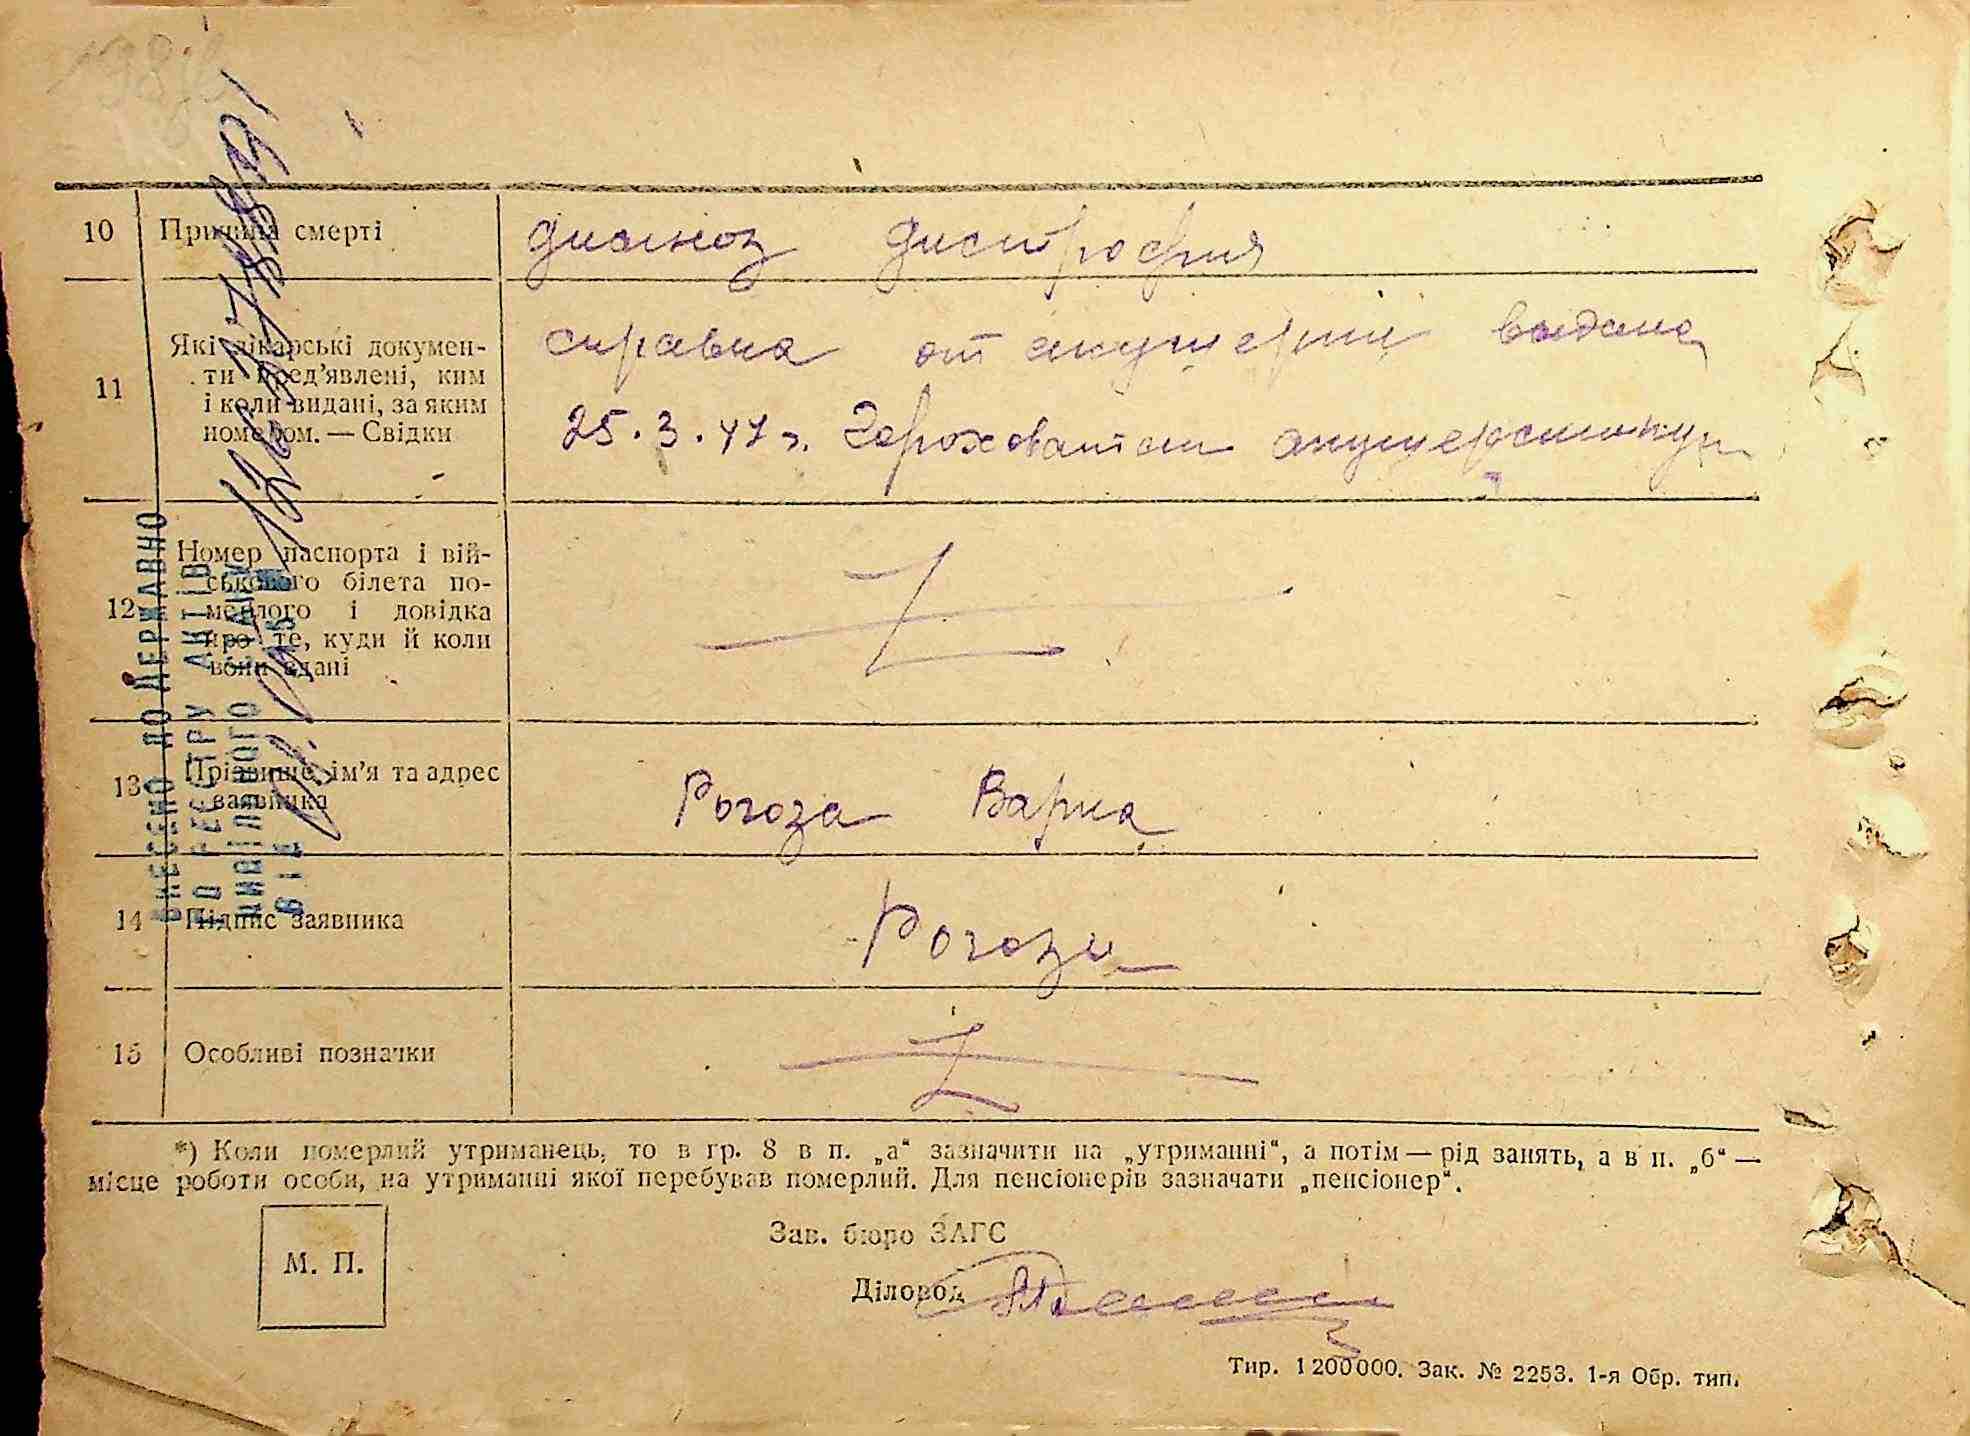 10 Причина смерті диагноз дистрофия
11 Які лікарські докумен-
ти пред'явлені, ким
і коли видані, за яким
номером. — Свідки
справка от акушерки выдана
25.3.47 г. Гороховатский акушерский пункт
12 Номер паспорта і вій-
ськового білета по-
мерлого і довідка
про те, куди й коли
вони здані
13 Прізвище, ім'я та адрес
заявника
Рогоза Варка
14 Підпис заявника Рогоза
15 Особливі позначки
*) Коли померлий утриманець, то в гр. 8 в п. „а“ зазначити на „утриманні“, а потім — рід занять, а в п. „б“ —
місце роботи особи, на утриманні якої перебував померлий. Для пенсіонерів зазначати „пенсіонер“.
М. П.
Зав. бюро ЗАГС
Діловод
Тир. 1 200 000. Зак. № 2253. 1-я Обр. тип.
ВНЕСЕНО ДО ДЕРЖАВНО
ГО РЕЄСТРУ АКТІВ
ЦИВІЛЬНОГО